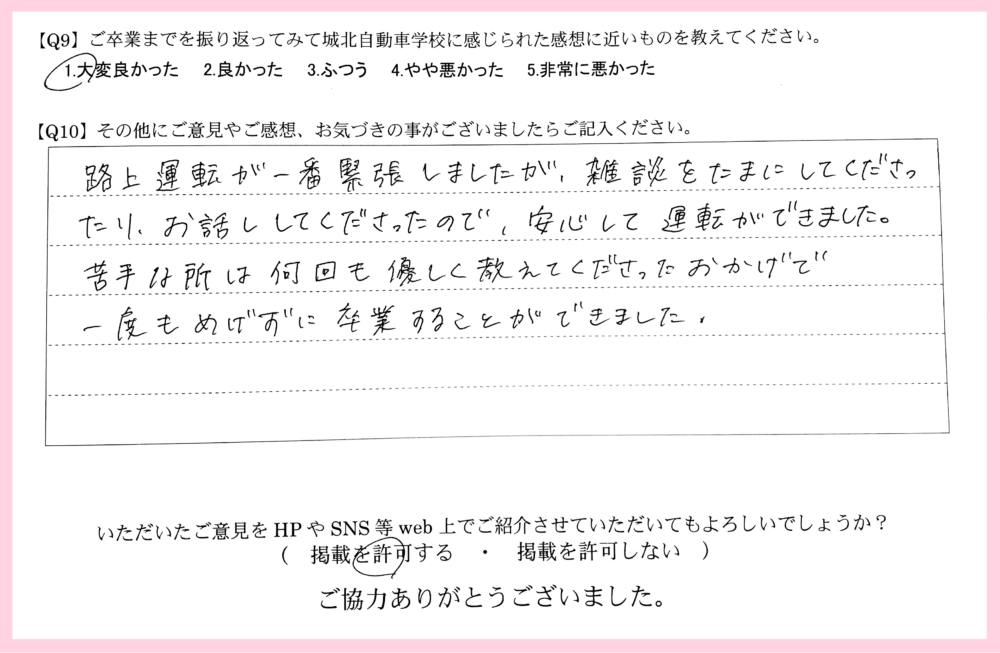 【Q9】ご卒業までを振り返ってみて城北自動車学校に感じられた感想に近いものを教えてください。
1.大変良かった 2.良かった 3.ふつう 4.やや悪かった 5.非常に悪かった
【Q10】その他にご意見やご感想、お気づきの事がございましたらご記入ください。
路上運転が一番緊張しましたが、雑談をたまにしてくださっ
たり、お話ししてくださったので、安心して運転ができました。
苦手な所は何回も優しく教えてくださったおかげで
一度もめげずに卒業することができました。
いただいたご意見をHPやSNS等web上でご紹介させていただいてもよろしいでしょうか？
( 掲載を許可する ・ 掲載を許可しない )
ご協力ありがとうございました。